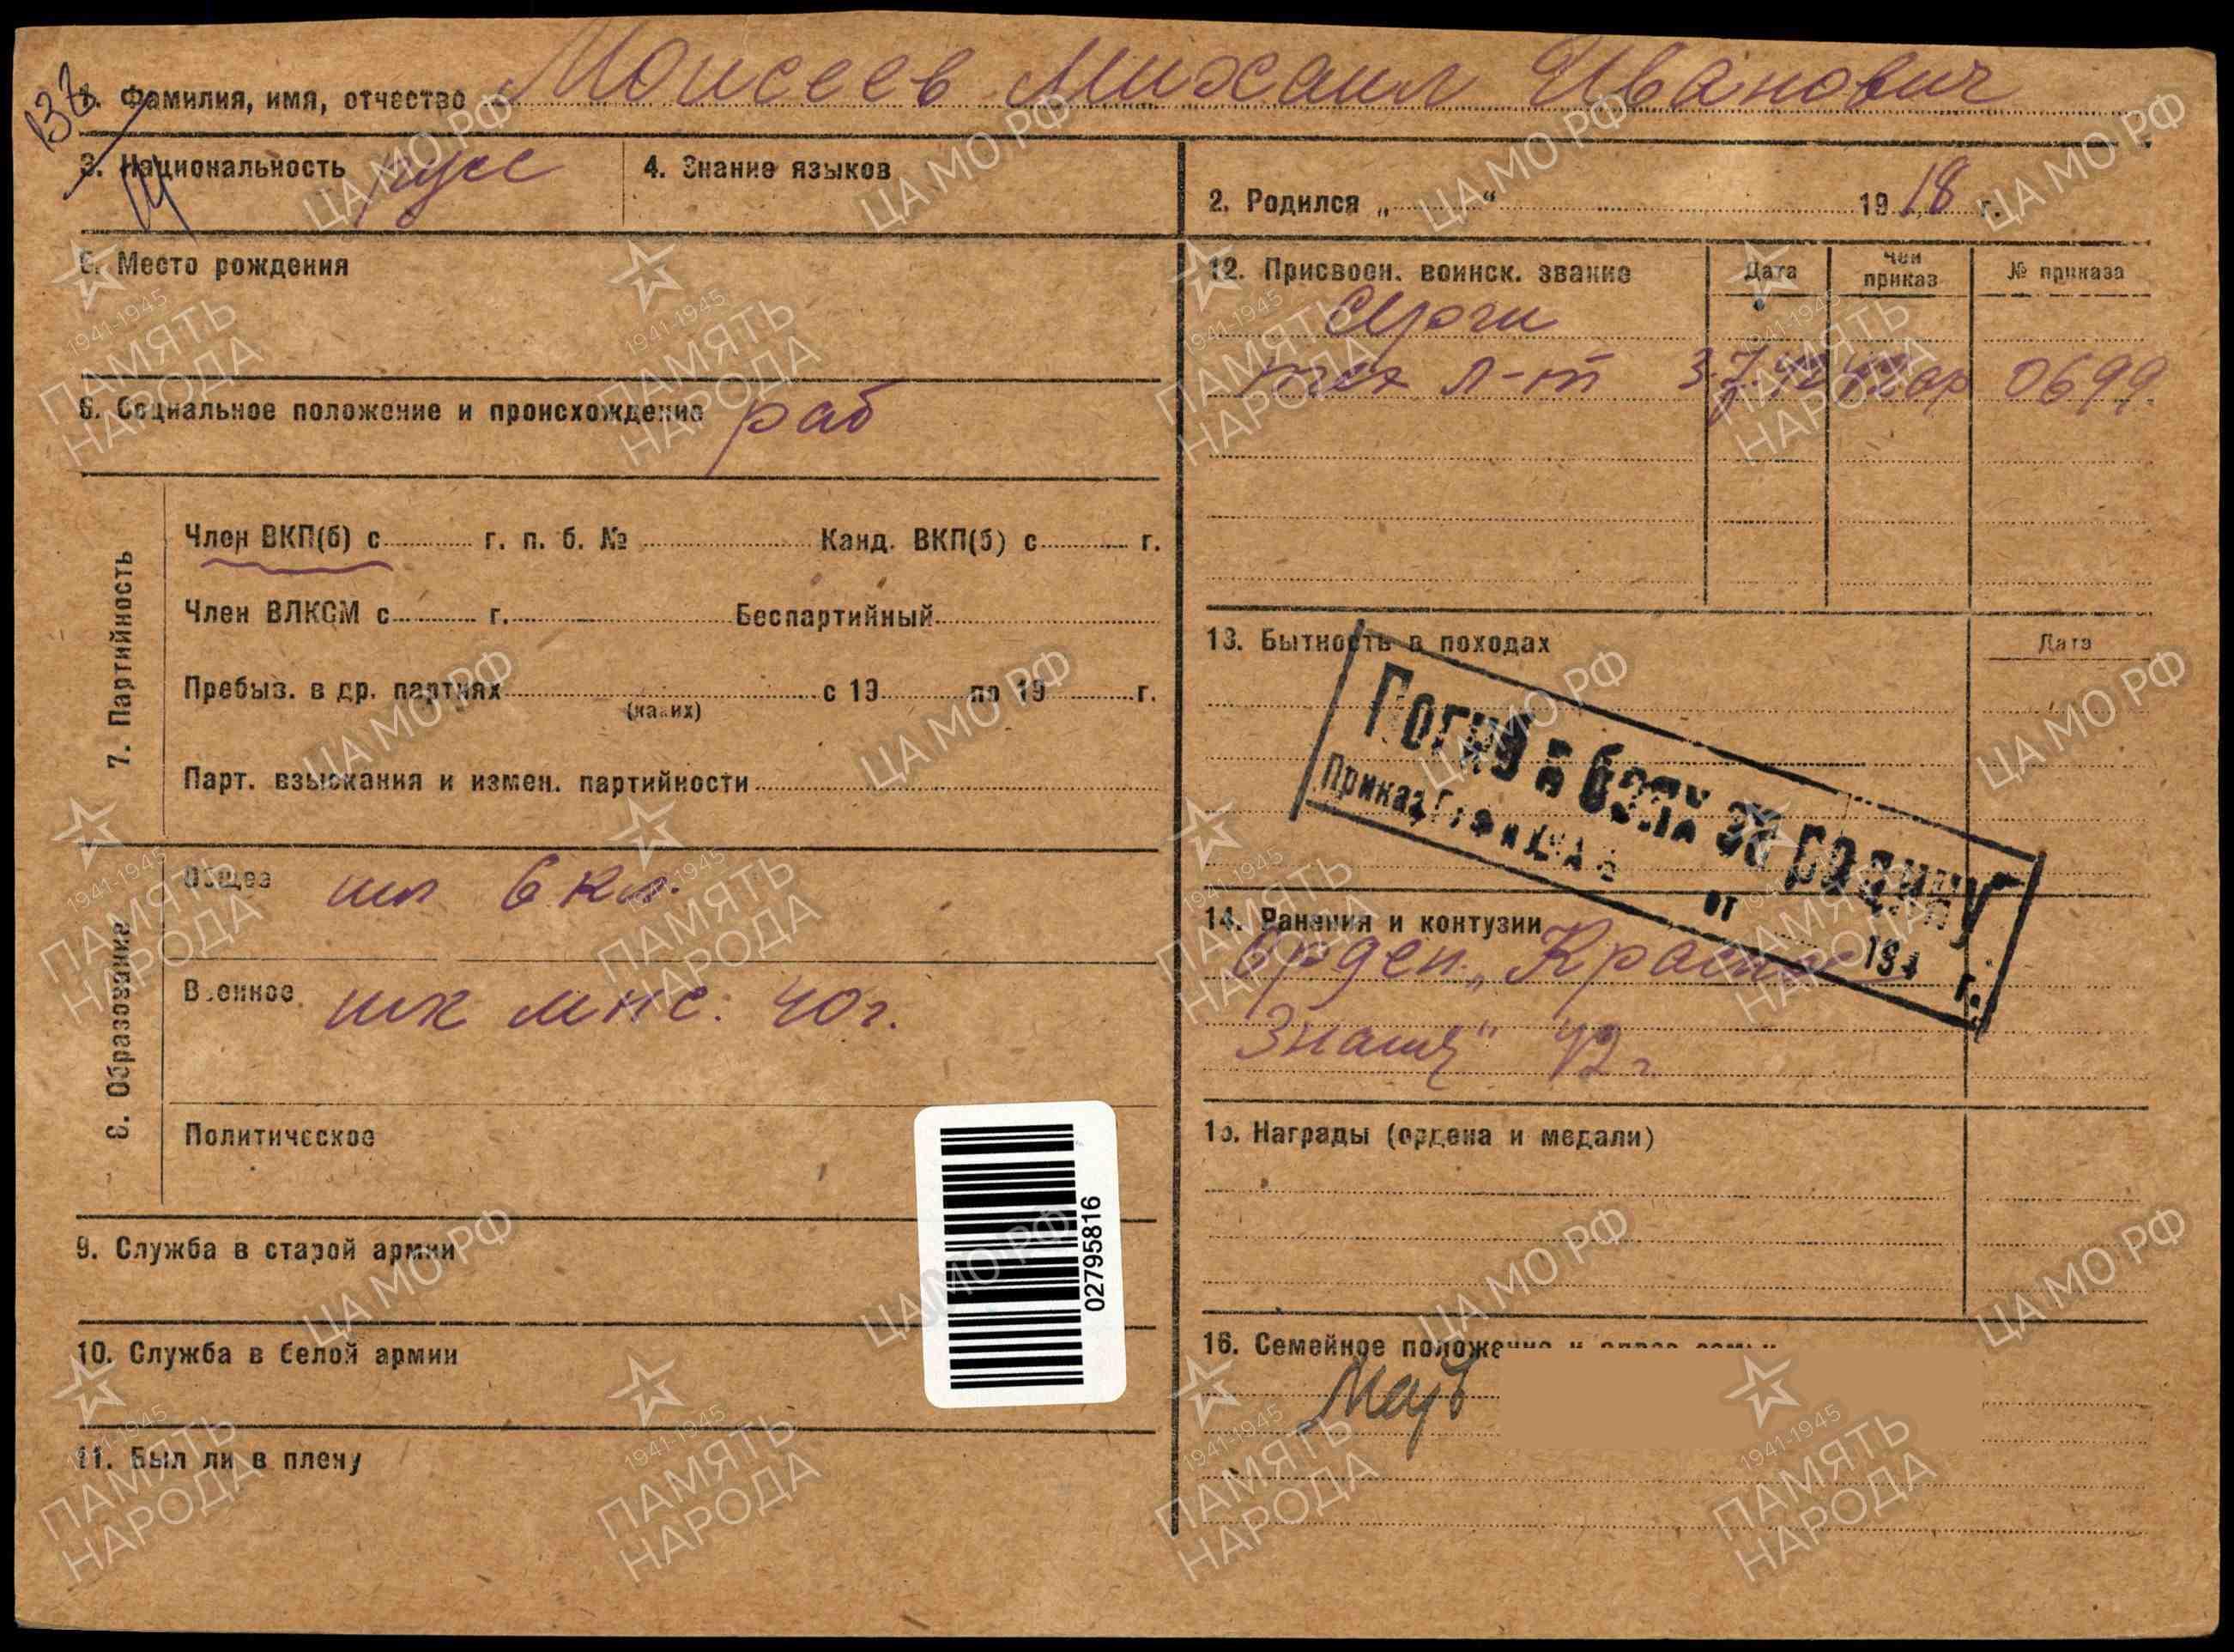 1. Фамилия, имя, отчество Моисеев Михаил Иванович
3. Национальность русс
4. Знание языков
2. Родился „ “ 1918 г.
5. Место рождения
6. Социальное положение и происхождение раб
7. Партийность
Член ВКП(б) с г. п. б. № Канд. ВКП(б) с г.
Член ВЛКСМ с г. Беспартийный
Пребыв. в др. партиях с 19 по 19 г.
(каких)
Парт. взыскания и измен. партийности
8. Образование
Общее 6 кл.
Военное шк мнс. 40 г.
Политическое
9. Служба в старой армии
10. Служба в белой армии
11. Был ли в плену
12. Присвоен. воинск. звание
Дата
Чей приказ
№ приказа
тех л-т 3.7.42 0699
13. Бытность в походах
Дата
Погиб в боях за Родину
Приказ от 194 г.
14. Ранения и контузии
Орден „Красное
Знамя" 42 г
15. Награды (ордена и медали)
16. Семейное положение и адрес семьи
Мать
02795816
ЦА МО РФ
1941-1945
ПАМЯТЬ
НАРОДА